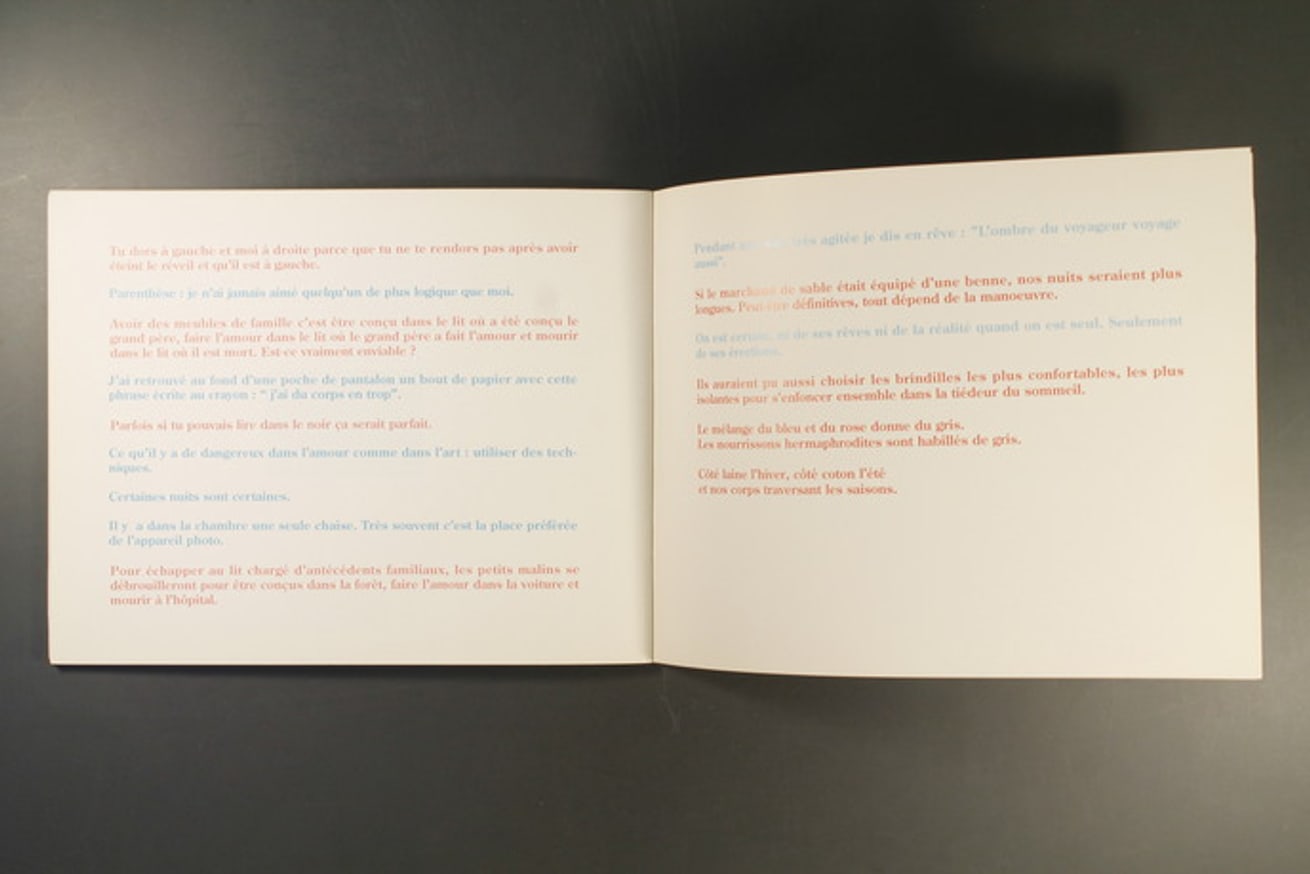 Tu dors à gauche et moi à droite parce que tu ne te rendors pas après avoir
éteint le réveil et qu'il est à gauche.
Parenthèse : je n'ai jamais aimé quelqu'un de plus logique que moi.
Avoir des meubles de famille c'est être conçu dans le lit où a été conçu le
grand père, faire l'amour dans le lit où le grand père a fait l'amour et mourir
dans le lit où il est mort. Est-ce vraiment enviable ?
J'ai retrouvé au fond d'une poche de pantalon un bout de papier avec cette
phrase écrite au crayon : " j'ai du corps en trop".
Parfois si tu pouvais lire dans le noir ça serait parfait.
Ce qu'il y a de dangereux dans l'amour comme dans l'art : utiliser des tech-
niques.
Certaines nuits sont certaines.
Il y a dans la chambre une seule chaise. Très souvent c'est la place préférée
de l'appareil photo.
Pour échapper au lit chargé d'antécédents familiaux, les petits malins se
débrouilleront pour être conçus dans la forêt, faire l'amour dans la voiture et
mourir à l'hôpital.
Pendant très agitée je dis en rêve : "L'ombre du voyageur voyage
aussi".
Si le marchand de sable était équipé d'une benne, nos nuits seraient plus
longues. Peut-être définitives, tout dépend de la manoeuvre.
On est certain, ni de ses rêves ni de la réalité quand on est seul. Seulement
de ses
Ils auraient pu aussi choisir les brindilles les plus confortables, les plus
isolantes pour s'enfoncer ensemble dans la tiédeur du sommeil.
Le mélange du bleu et du rose donne du gris.
Les nourrissons hermaphrodites sont habillés de gris.
Côté laine l'hiver, côté coton l'été
et nos corps traversant les saisons.